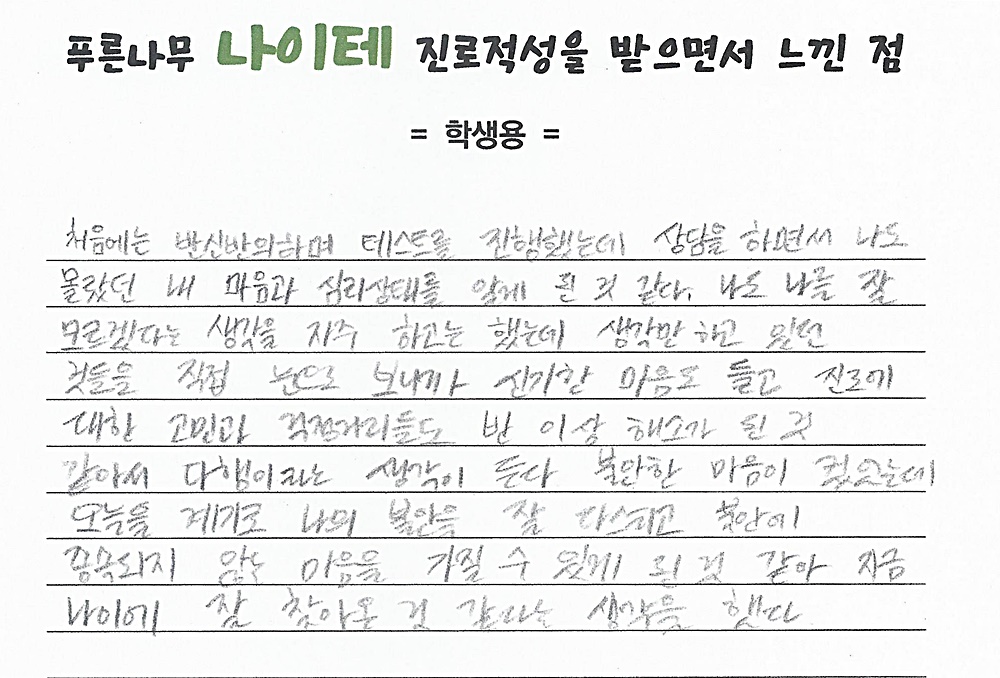 푸른나무 나이테 진로적성을 받으면서 느낀 점
= 학생용 =
처음에는 반신반의하며 테스트를 진행했는데 상담을 하면서 나도
몰랐던 내 마음과 심리상태를 알게 된 것 같다. 나도 나를 잘
모르겠다는 생각을 자주 하고는 했는데 생각만 하고 있던
것들을 직접 눈으로 보니까 신기한 마음도 들고 진로에
대한 고민과 걱정거리들도 반 이상 해소가 된 것
같아서 다행이라는 생각이 든다 불안한 마음이 컸었는데
오늘을 계기로 나의 불안을 잘 다스리고 불안에
종속되지 않는 마음을 가질 수 있게 된 것 같아 지금
나이에 잘 찾아온 것 같다는 생각을 했다